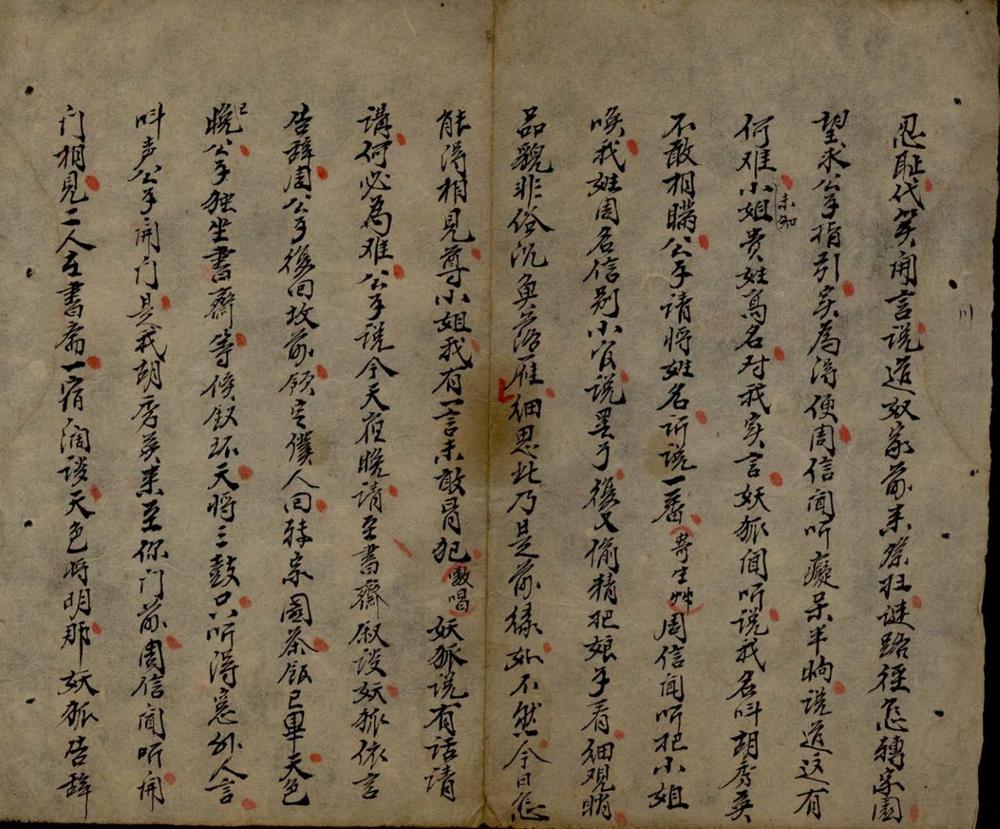 忍耻代笑開言說道奴家前来祭扫谜路徑怎轉家園
望求公子指引实為淂便周信闻听癡呆半晌说道这有
何难未知小姐贵姓高名对我实言妖狐闻听说我名叫胡秀英
不敢相瞒公子请将姓名訢说一番寄生艸周信闻听把小姐
唤我姓周名信别小官说罢了後又偷精把娘子看细观睄
品貌非俗沉鱼落雁细思此乃是前缘如不然今日怎
能淂相見尊小姐我有一言未敢冒犯嗷唱妖狐说有话请
講何必為难公子说今天夜晚请至書齋叙谈妖狐依言
告辞周公子後回坟前领定僕人回转家園茶飯已畢天色
已晚公子独坐書齋等候釵环天将三鼓只听淂窓外人言
叫声公子開门是我胡秀英来至你门前周信闻听開
门相見二人在書斋一宿阔谈天色将明那妖狐告辞